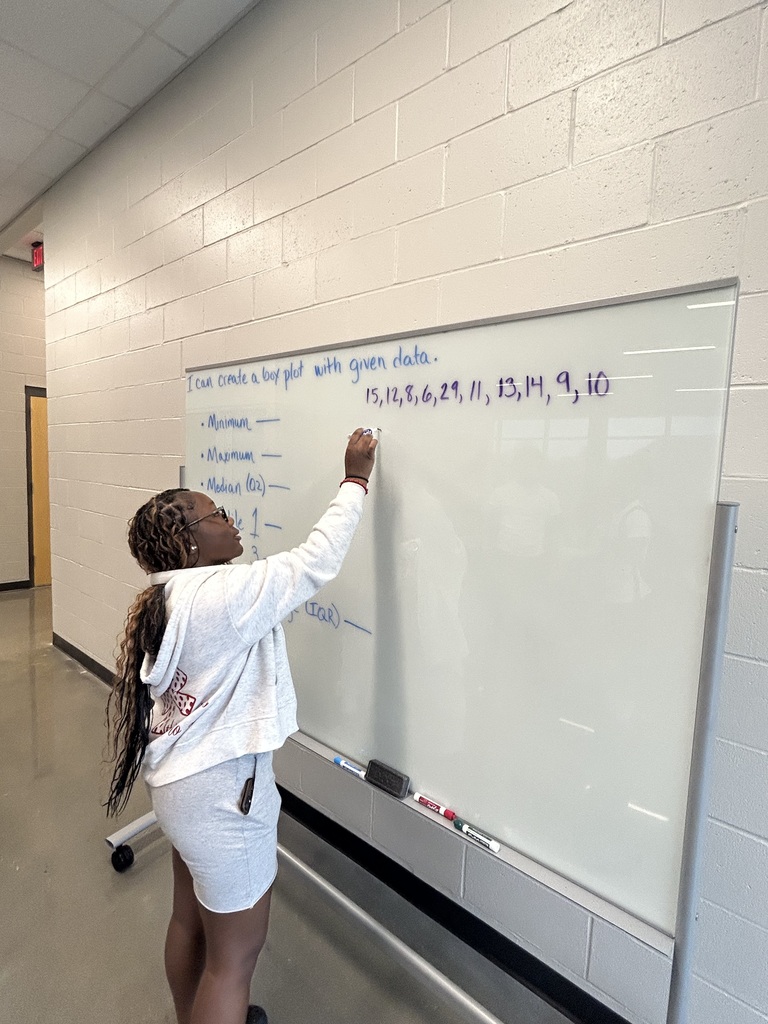 I can create a box plot with given data.
15, 12, 8, 6, 29, 11, 13, 14, 9, 10
• Minimum —
• Maximum —
• Median (Q2) —
1 —
3
(IQR) —